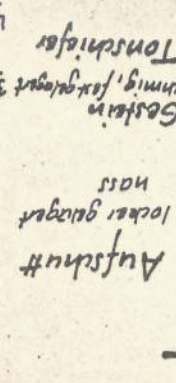 Aufschutt
locker gelagert
nass
Gestein
fest gelagert
Tonschiefer